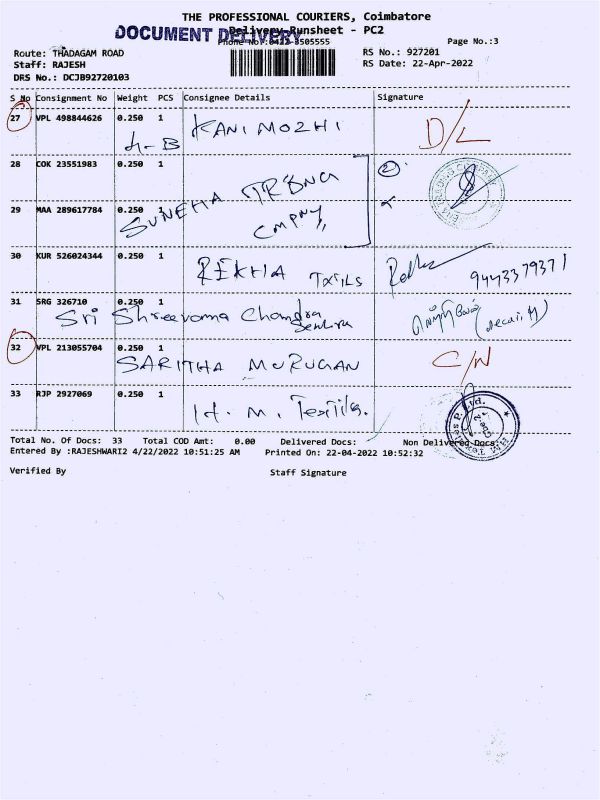 THE PROFESSIONAL COURIERS, Coimbatore
DOCUMENT DELIVERY
Delivery Runsheet - PC2
Phone No: 0422-3505555 Page No.:3
Route: THADAGAM ROAD RS No.: 927201
Staff: RAJESH RS Date: 22-Apr-2022
DRS No.: DCJB92720103
S No Consignment No Weight PCS Consignee Details Signature
27 VPL 498844626 0.250 1 KANIMOZHI D/L
28 COK 23551983 0.250 1
29 MAA 289617784 0.250 1 SUNEHA
30 KUR 526024344 0.250 1 REKHA TXTILS 9443379371
31 SRG 326710 0.250 1
Sri Chandra
32 VPL 213055704 0.250 1 SARITHA MURUGAN C/N
33 RJP 2927069 0.250 1 H. M. Textils.
Total No. Of Docs: 33 Total COD Amt: 0.00 Delivered Docs: Non Delivered Docs:
Entered By :RAJESHWARI2 4/22/2022 10:51:25 AM Printed On: 22-04-2022 10:52:32
Verified By Staff Signature